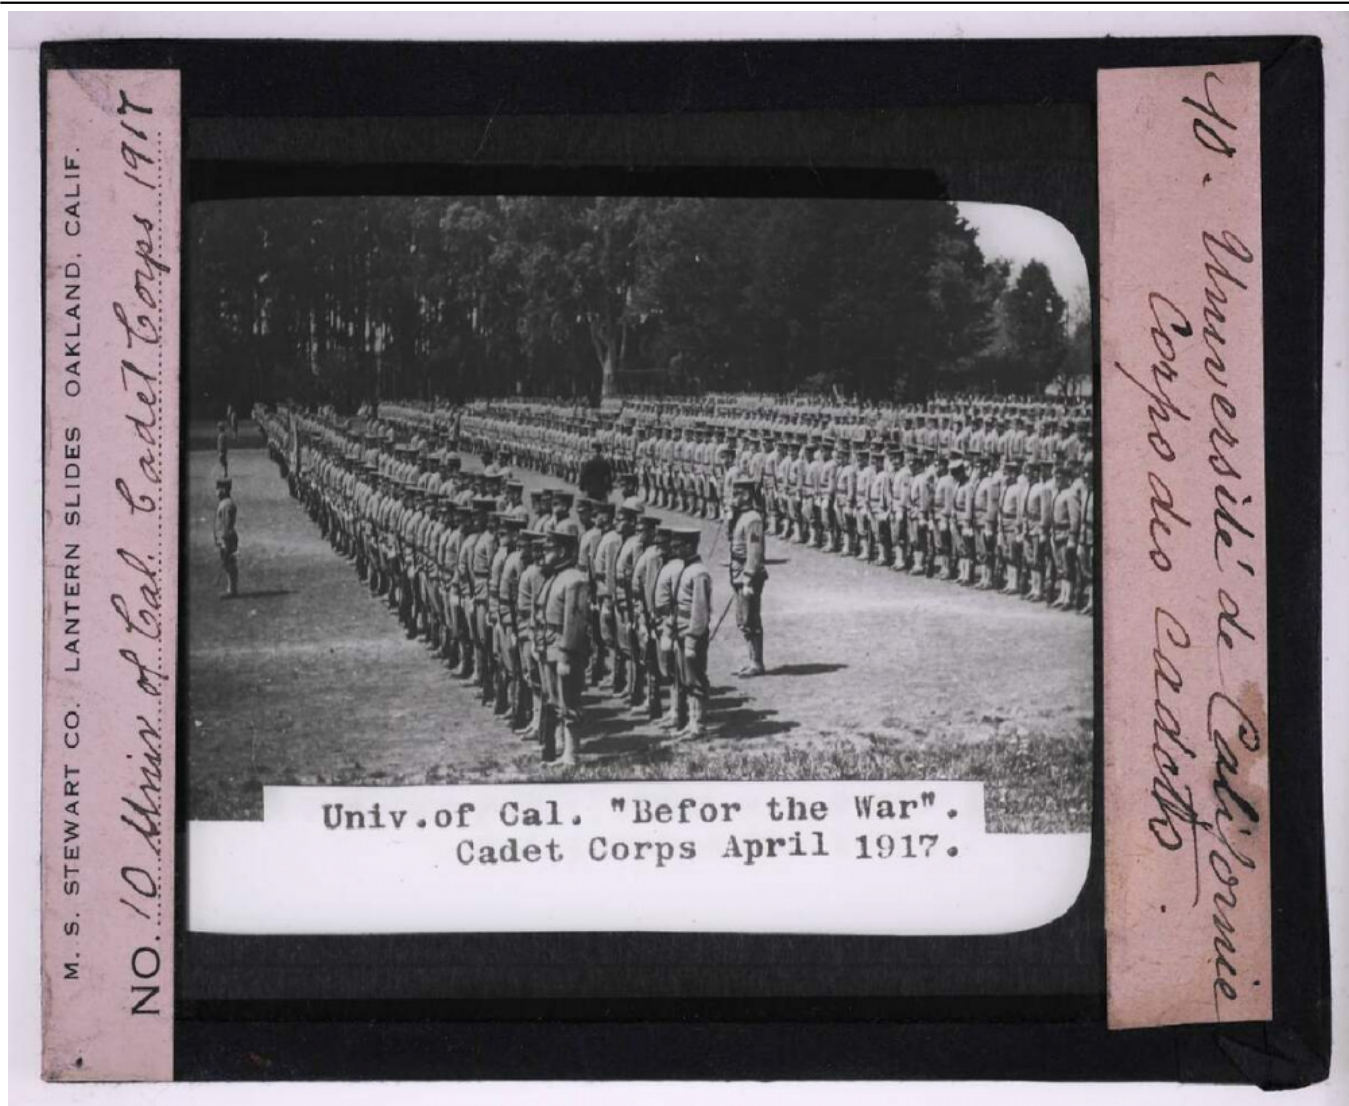 M. S. STEWART CO. LANTERN SLIDES OAKLAND, CALIF.
NO. 10 Univ. of Cal. Cadet Corps 1917
Univ.of Cal. "Befor the War".
Cadet Corps April 1917.
10. Université de Californie
Corps des Cadets.